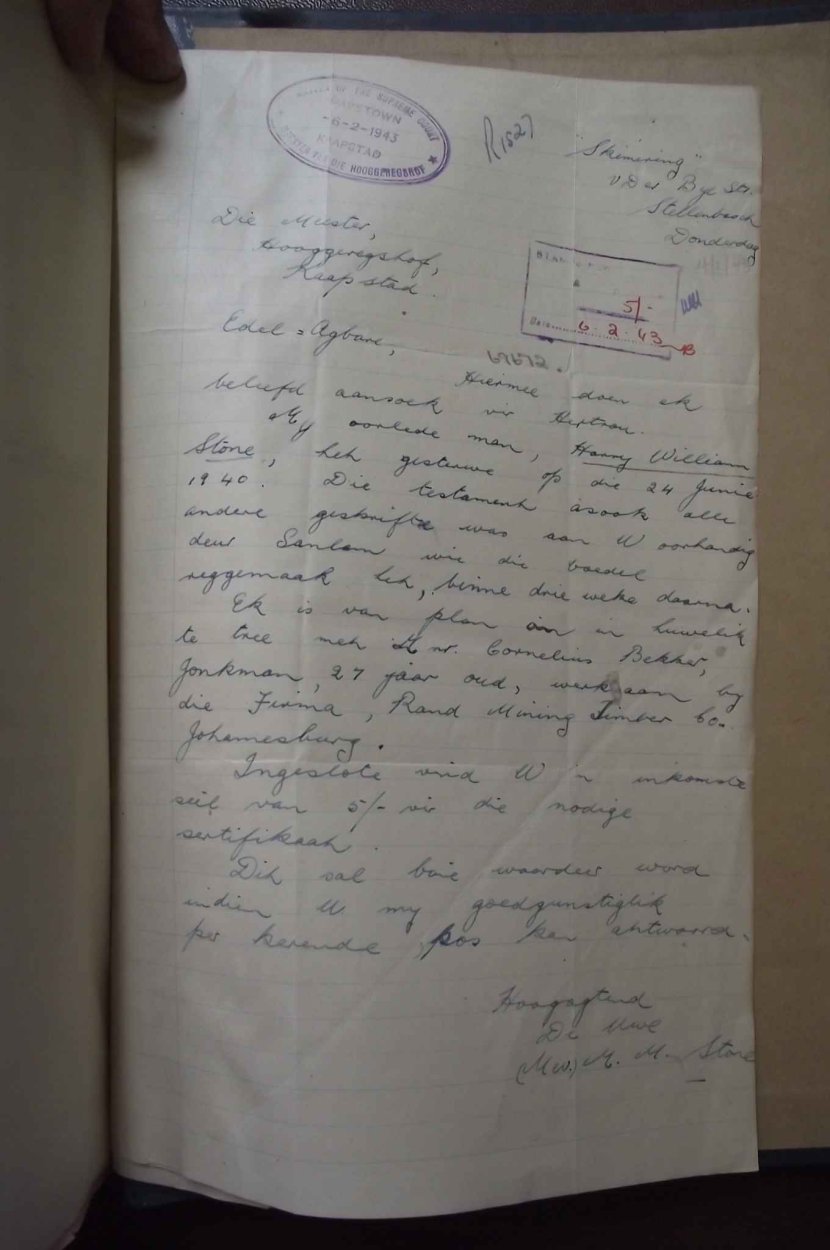 MASTER OF THE SUPREME COURT
CAPETOWN
-6-2-1943
KAAPSTAD
MEESTER VAN DIE HOOGGEREGSHOF
R1527
"Skimering"
v Der Byl Str.
Stellenbosch
Donderdag
Die Meester,
Hooggeregshof,
Kaapstad.
5/-
Date 6.2.43
Edel = Agbare,
Hiermee doen ek
beleefd aansoek vir Hertrou.
My oorlede man, Harry William
Stone, het gesterwe op die 24 Junie
1940. Die testament asook alle
andere geskrifte was aan U oorhandig
deur Sanlam wie die boedel
reggemaak het, binne drie weke daarna.
Ek is van plan om in huwelik
te tree met Mnr. Cornelius Bekker,
Jonkman, 27 jaar oud, werksaam by
die Firma, Rand Mining Timber Co.
Johannesburg.
Ingeslote vind U 'n inkomste
seël van 5/- vir die nodige
sertifikaat.
Dit sal baie waardeer word
indien U my goedgunstiglik
per kerende pos kan antwoord.
Hoogagtend
Die Uwe
(Mev.) M. M. Stone